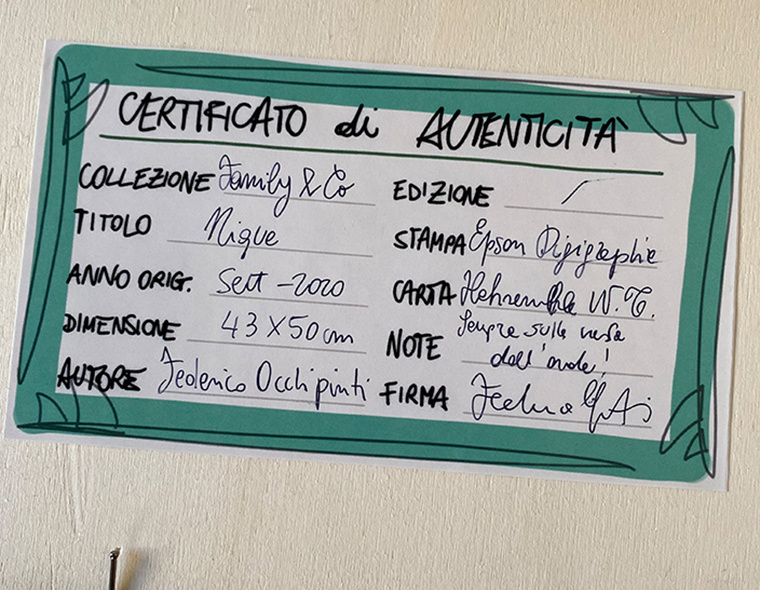 CERTIFICATO di AUTENTICITÀ
COLLEZIONE Family & Co
TITOLO Nique
ANNO ORIG. Sett - 2020
DIMENSIONE 43 X 50 cm
AUTORE Federico Occhipinti
EDIZIONE /
STAMPA Epson Digigraphie
CARTA W.T.
NOTE Sempre sulla
dell'onda!
FIRMA